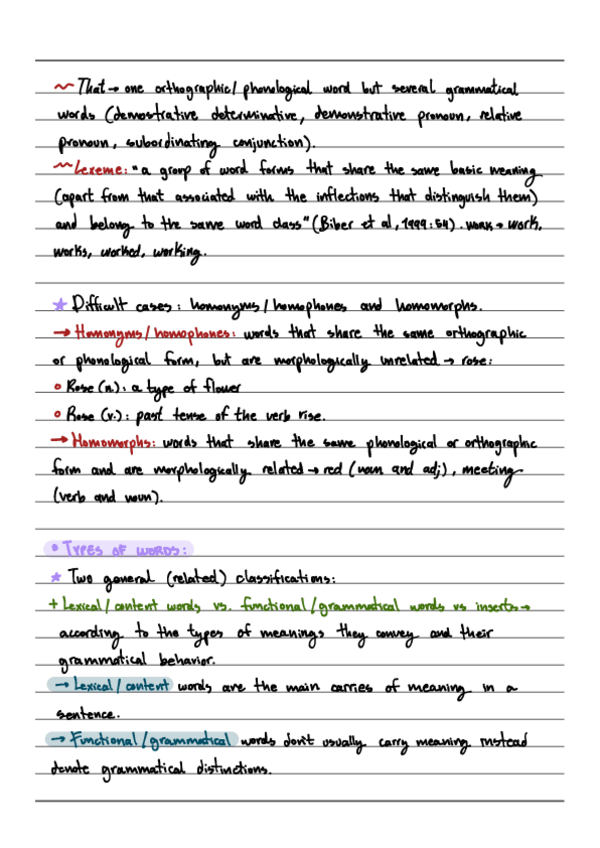 ~ That → one orthographic/phonological word but several grammatical
words (demostrative determinative, demonstrative pronoun, relative
pronoun, subordinating conjunction).
~ Lexeme: "a group of word forms that share the same basic meaning
(apart from that associated with the inflections that distinguish them)
and belong to the same word class" (Biber et al, 1999:54). work → work,
works, worked, working.
★ Difficult cases: homonyms/homophones and homomorphs.
→ Homonyms/homophones: words that share the same orthographic
or phonological form, but are morphologically unrelated → rose:
• Rose (n.): a type of flower
• Rose (v.): past tense of the verb rise.
→ Homomorphs: words that share the same phonological or orthographic
form and are morphologically related → red (noun and adj), meeting
(verb and noun).
• TYPES OF WORDS:
★ Two general (related) classifications:
+ Lexical/content words vs. functional/grammatical words vs inserts →
according to the types of meanings they convey and their
grammatical behavior.
→ Lexical/content words are the main carries of meaning in a
sentence.
→ Functional/grammatical words don't usually carry meaning instead
denote grammatical distinctions.